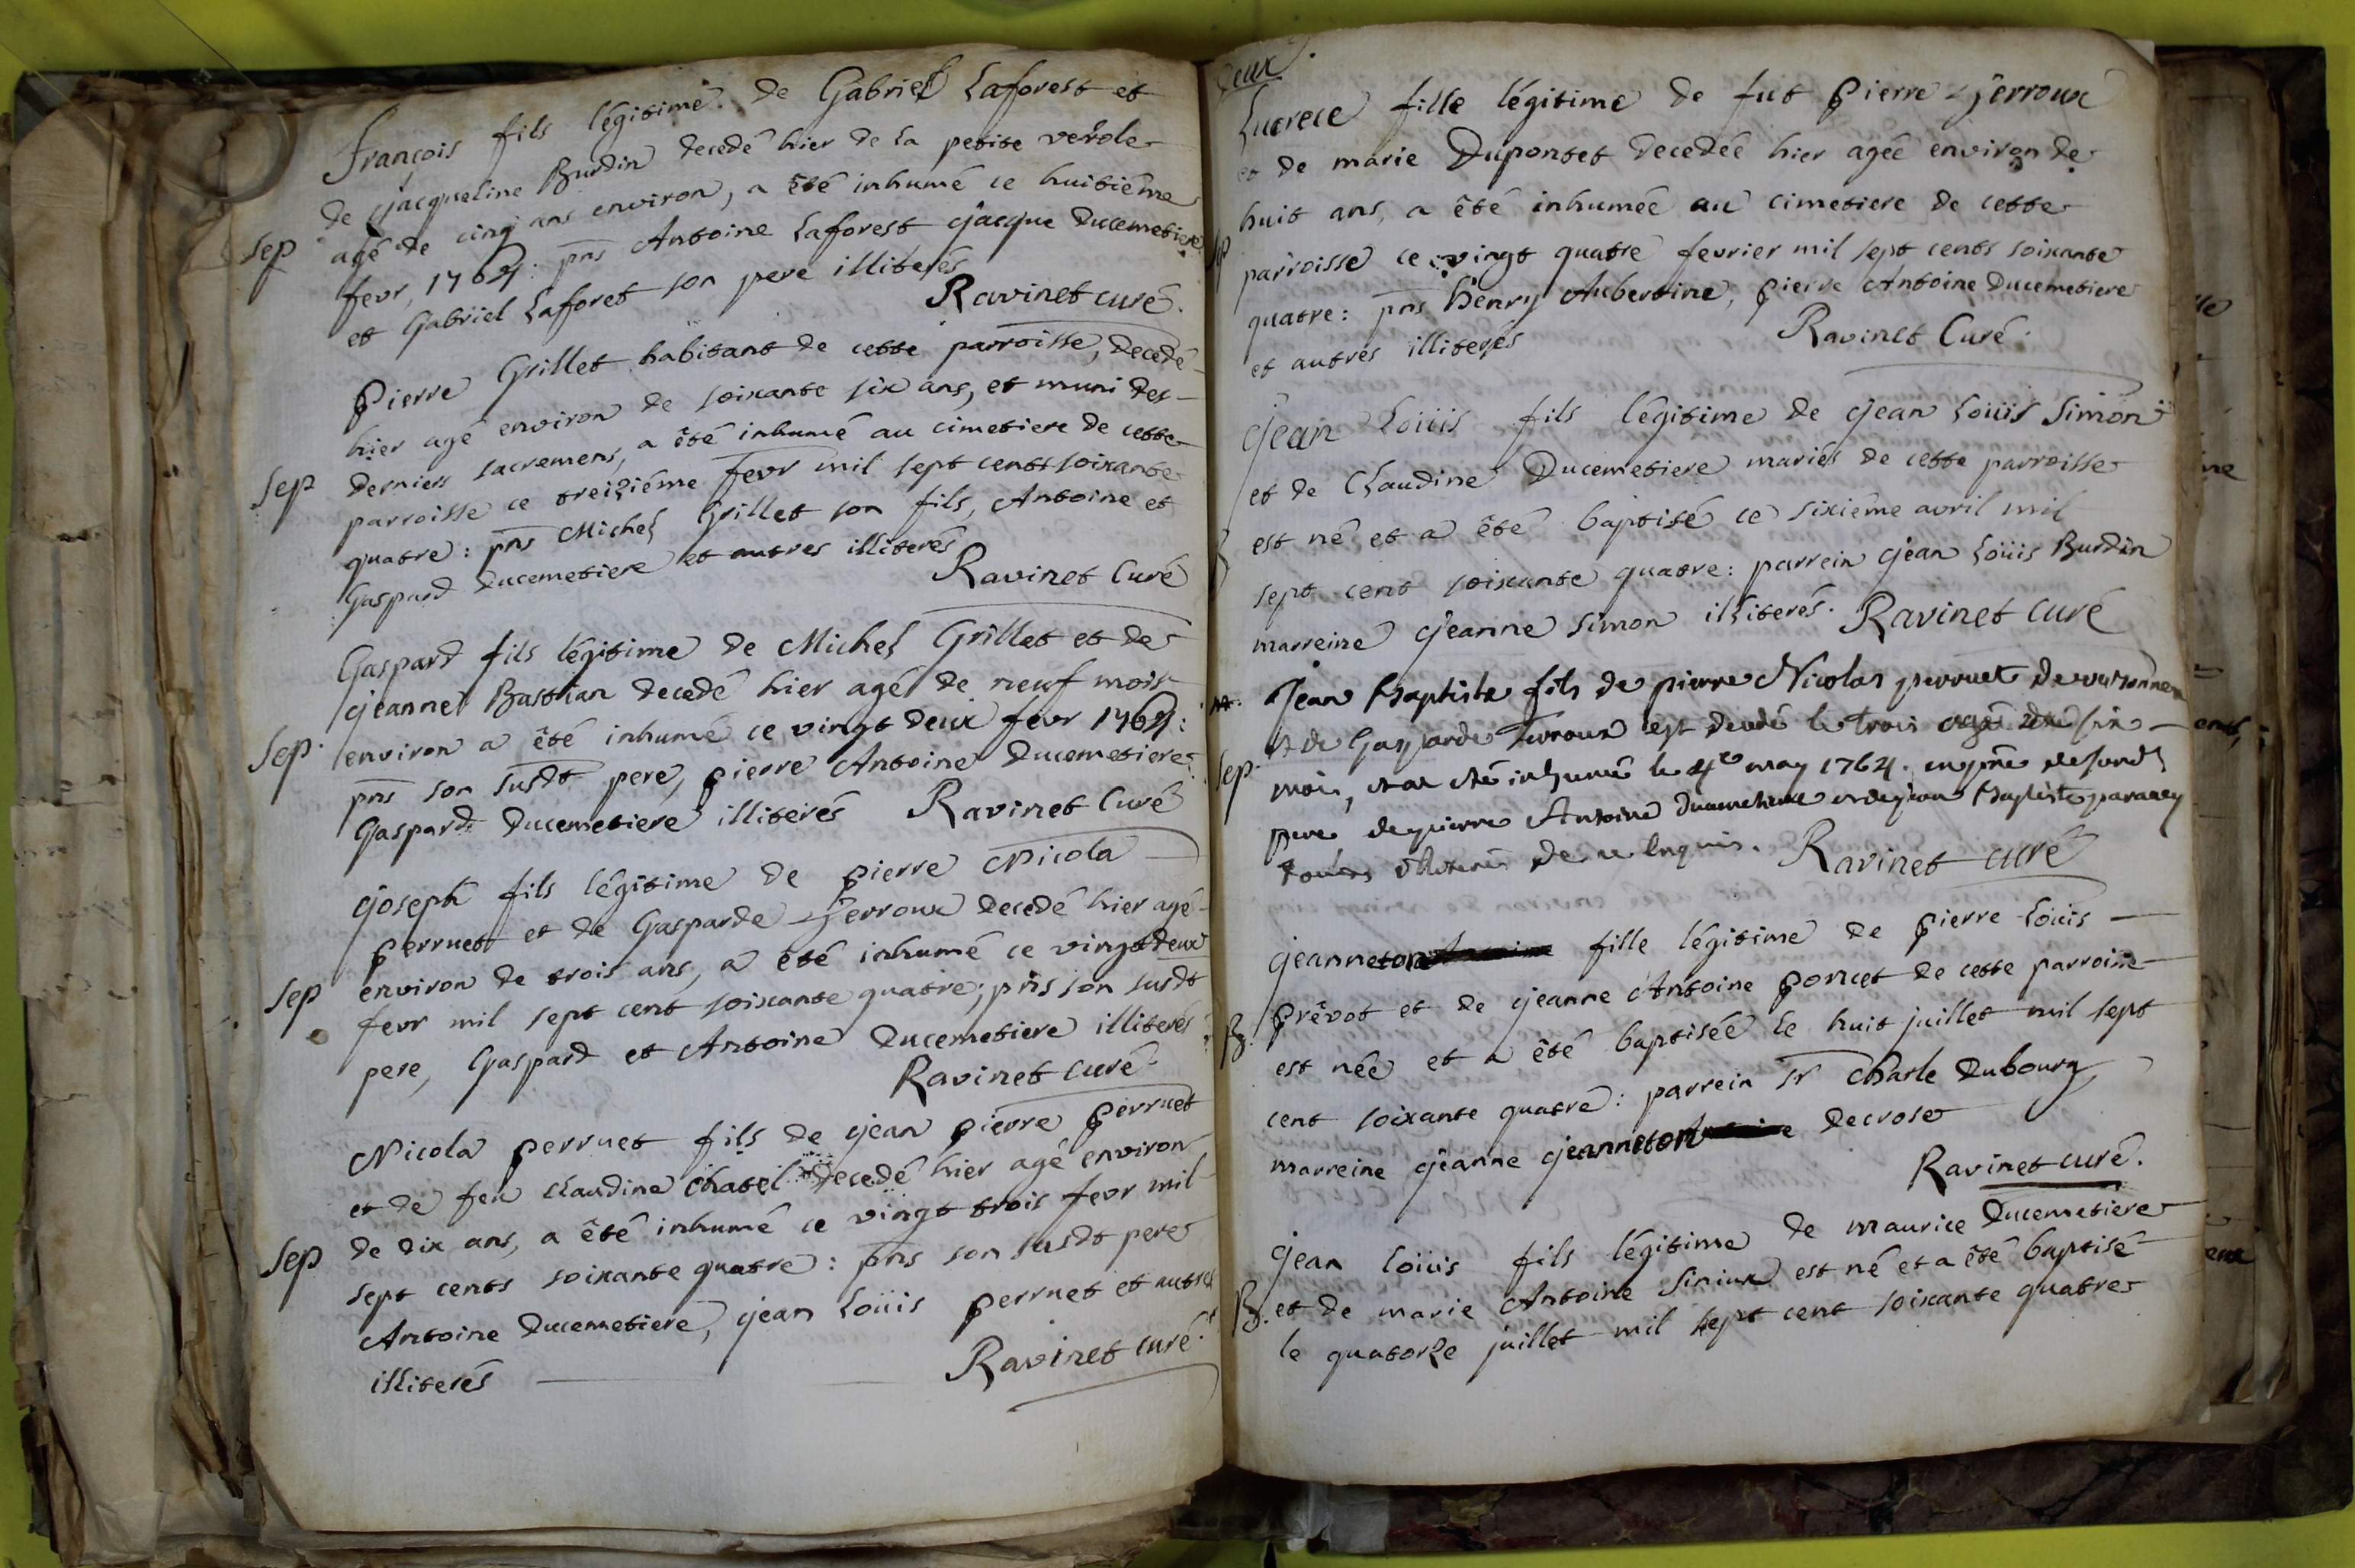 François fils légitime de Gabriel Laforest et
de Jacqueline Burdin decedé hier de la petite verole
Sep
agé de cinq ans environ, a êté inhumé ce huitiéme
fevr, 1764: pns Antoine Laforest Jacque Ducemetiere
et Gabriel Laforet son pere illiterés
Ravinet curé.
Pierre Grillet habitant de cette parroisse, decedé
hier agé environ de soixante six ans, et muni des
Sep
derniers sacremens, a êté inhumé au cimetiere de cette
parroisse ce treiziéme fevr mil sept cents soixante
quatre: pns Michel Grillet son fils, Antoine et
Gaspard Ducemetiere et autres illiterés
Ravinet Curé
Gaspard fils légitime de Michel Grillet et de
Jeanne Bastian decedé hier agé de neuf mois
Sep.
environ a êté inhumé ce vingt deux fevr 1764:
pns son susdt pere, pierre Antoine Ducemetiere
Gaspard Ducemetiere illiterés Ravinet Curé
Joseph fils légitime de pierre Nicola
perruet et de Gasparde Ferroux decedé hier agé
Sep
environ de trois ans, a êté inhumé ce vingt deux
fevr mil sept cent soixante quatre; pns son susdt
pere, Gaspard et Antoine Ducemetiere illiterés
Ravinet curé
Nicola perruet fils de Jean pierre perruet
et de feu claudine chatel decedé hier agé environ
Sep
de dix ans, a êté inhumé ce vingt trois fevr mil
sept cents soixante quatre: pns son susdt pere
Antoine Ducemetiere, Jean Loüis perruet et autres
illiterés Ravinet curé
deux
Lucrece fille légitime de fut pierre Ferroux
et de marie Dupontet decedée hier agée environ de
huit ans, a êté inhumée au cimetiere de cette
Sep
parroisse ce vingt quatre fevrier mil sept cents soixante
quatre: pns henry Aubertine, pierre Antoine Ducemetiere
et autres illiterés Ravinet Curé
Jean Loüis fils légitime de Jean Loüis Simon
et de Claudine Ducemetiere mariés de cette parroisse
est né et a êté baptisé ce sixiême avril mil
sept cent soixante quatre: parrein Jean Loüis Burdin
marreine Jeanne Simon illiterés. Ravinet curé
Jean Baptiste fils de pierre Nicolas perruet
et de Gasparde Ferroux est decedé le trois agé de six
Sep.
mois, et a eté inhumé le 4e may 1764. en pñe
pere, de pierre Antoine Ducemetiere et de jean Baptiste
de ce enquis. Ravinet curé
Jeanneton fille légitime de pierre Loüis
prêvot et de Jeanne Antoine poncet de cette parroisse
B.
est née et a êté baptisée le huit juillet mil sept
cent soixante quatre: parrein Sr Charle Dubourg
marreine Jeanne Jeanneton Decrose
Ravinet curé.
Jean Loüis fils légitime de maurice Ducemetiere
B. et de marie Antoine Siriux est né et a êté baptisé
le quatorze juillet mil sept cent soixante quatre